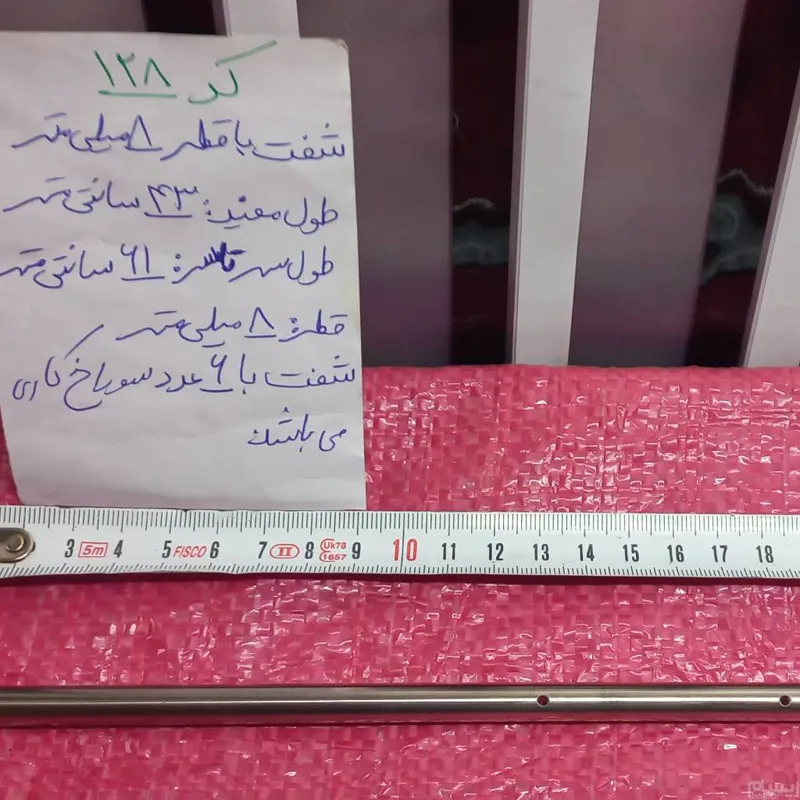 کد ۱۲۸
شفت با قطر ۸ میلی متر
طول مفید: ۴۳ سانتی متر
طول سر تا سر: ۶۱ سانتی متر
قطر: ۸ میلی متر
شفت با ۶ عدد سوراخ کاری
می باشد
3 5m 4 5 FISCO 6 7 II 8 Uk78 1657 9 10 11 12 13 14 15 16 17 18
ایسام